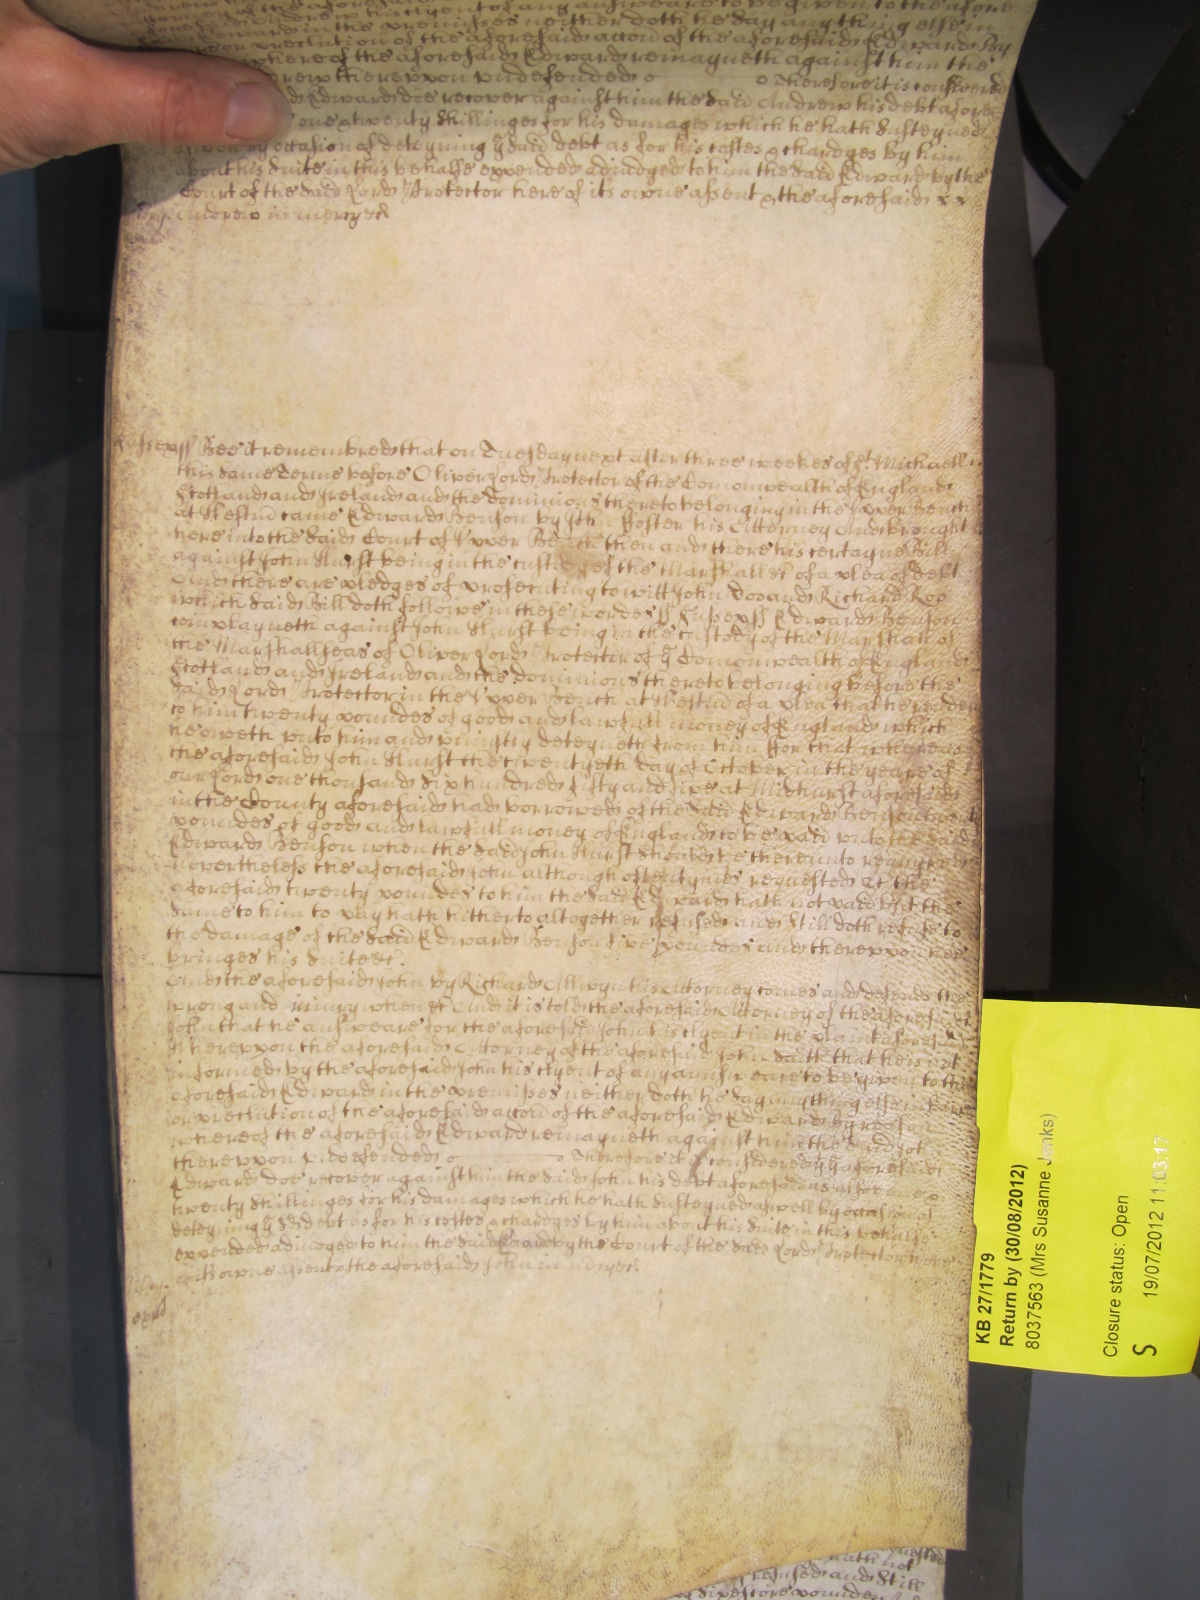 of the aforesaid
Andrew his clyent of any answeare to be given to the afore
said Edward in the premisses neither doth he say any thing else in
barr or preclution of the aforesaid accon of the aforesaid Edward By
where of the aforesaid Edward remayneth against him the
Andrew thereupon undefended o o Therefore it is considered
Edward doe recover against him the said Andrew his debt afores
one & twenty shillinges for his damages which he hath susteyned
aswell by occasion of deteyning ye said debt as for his costes & chardges by him
about his suite in this behalfe expended adiudged to him the said Edward by the
Court of the said Lord Protector here of its owne assent & the aforesaid
Andrew in mercy &c
Sussex ss Bee it remembred that on Tuesday next after three weekes of St. Michaell
this same Terme before Oliver Lord Protector of the Comonwealth of England
Scotland and Ireland and the dominions thereto belonging in the Upper Bench
at Westmr came Edward Benson by John Foster his Attorney And brought
here into the said Court of Upper Bench then and there his certayne Bill
against John Hurst being in the custody of the Marshall &c of a plea of debt
And there are pledges of prosecuting to witt John Doo and Richard Roo
which said Bill doth followe in these wordes ss Sussex ss Edward Benson
complayneth against John Hurst being in the custody of the Marshall of
the Marshallseas of Oliver Lord Protector of ye Comonwealth of England
Scotland and Ireland and the dominions thereto belonging before the
said Lord Protector in the Upper Bench at Westmr of a plea that he render
to him twenty poundes of good and lawfull money of England which
he oweth unto him and uniustly deteyneth from him For that whereas
the aforesaid John Hurst the twentyeth day of October in the yeare of
our Lord one thousand six hundred fifty and sixe at Midhurst aforesaid
in the County aforesaid had borrowed of the said Edward Benson twenty
poundes of good and lawfull money of England to be paid unto the said
Edward Benson when the said John Hurst should be thereunto required
Nevertheless the aforesaid John although oftentymes requested &c the
aforesaid twenty poundes to him the said Edward hath not paid but the
same to him to pay hath hitherto altogether refused and still doth refuse to
the damage of the said Edward Benson five poundes and thereupon hee
bringes his suite &c.
And the aforesaid John by Richard Allwyn his Attorney comes and defends the
wrong and iniury when &c And it is told the aforesaid Attorney of the aforesaid
John that he answeare for the aforesaid John his clyent in the plaint aforesaid
Whereupon the aforesaid Attorney of the aforesaid John saith that he is not
informed by the aforesaid John his clyent of any answeare to be given to the
aforesaid Edward in the premisses neither doth he say any thing else in barr
or preclution of the aforesaid accon of the aforesaid Edward by reason
where of the aforesaid Edward remayneth against him the said John
thereupon undefended o o Therefore it is considered yt ye aforesaid
Edward doe recover against him the said John his debt aforesaid as alsoe one &
twenty shillinges for his damages which he hath susteyned aswell by occasion of
deteyning ye said debt as for his costes & chardges by him about his suite in this behalfe
expended adiudged to him the said Edward by the Court of the said Lord Protector here
of its owne assent & the aforesaid John in mercy &c
KB 27/1779
Return by (30/08/2012)
8037563 (Mrs Susanne Jenks)
Closure status: Open
S 19/07/2012 11:03:17
hath not
refused and still